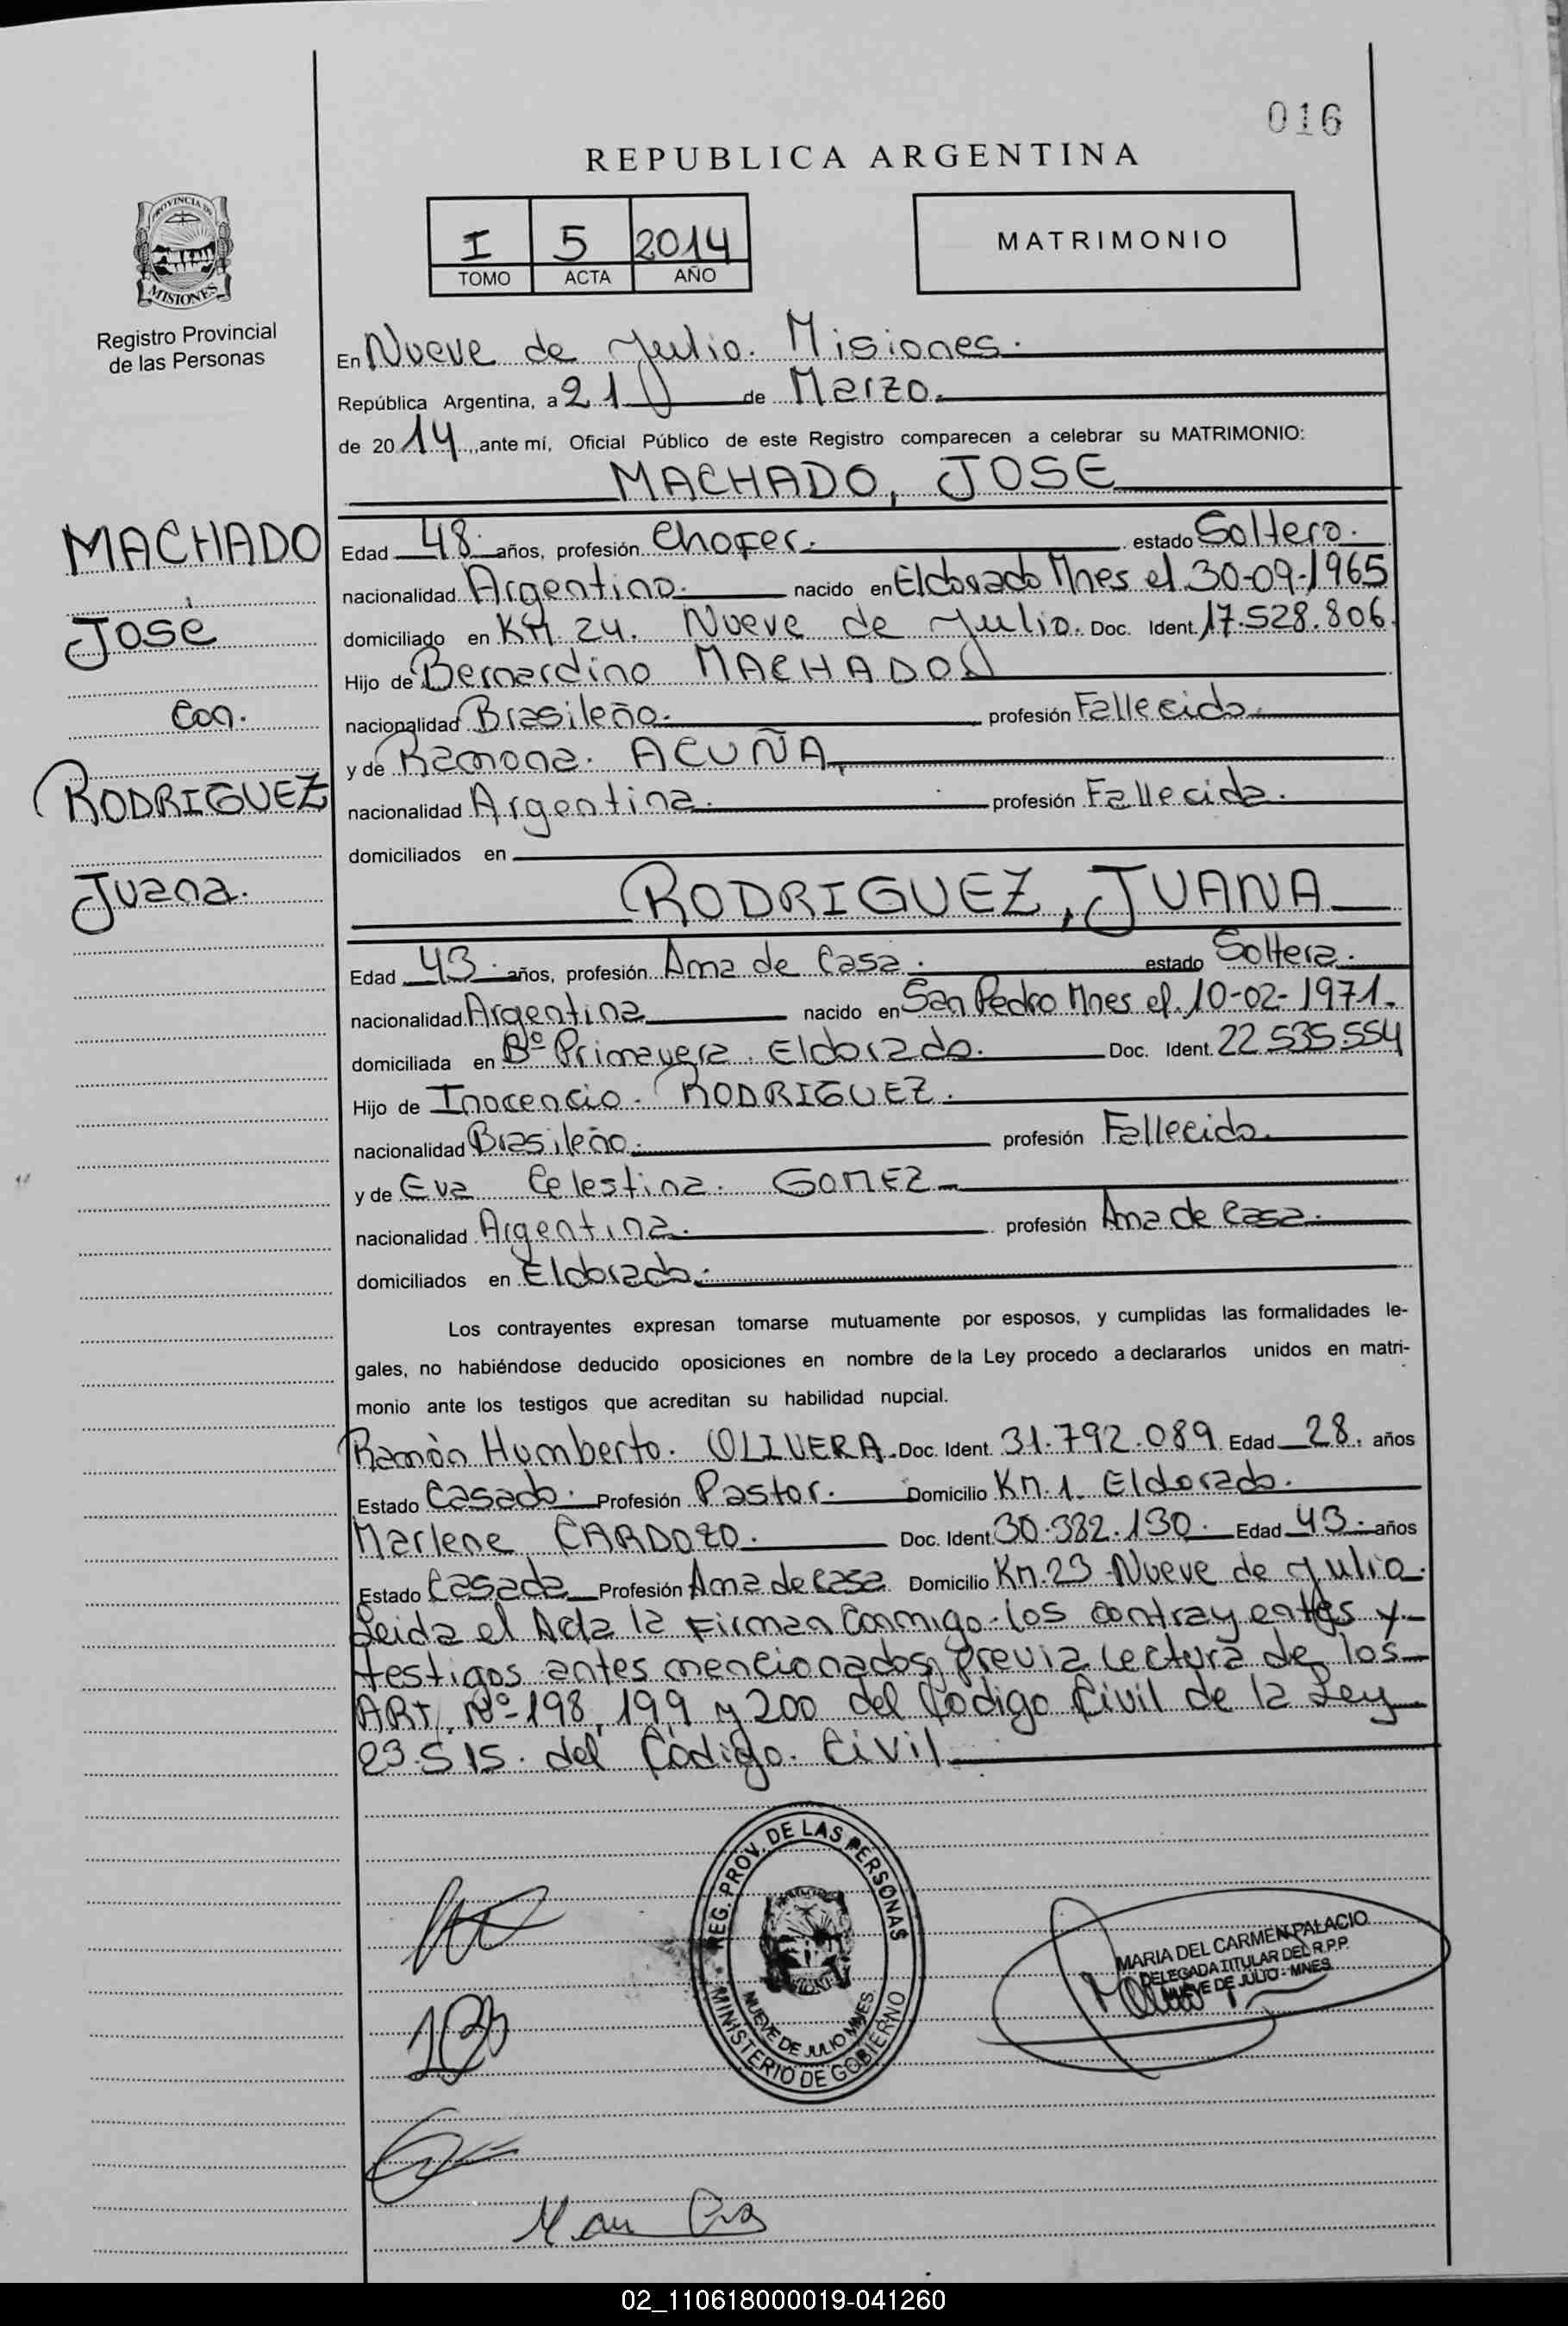 016
REPUBLICA ARGENTINA
PROVINCIA DE
MISIONES
Registro Provincial
de las Personas
I 5 2014
TOMO ACTA AÑO
MATRIMONIO
En Nueve de Julio. Misiones.
República Argentina, a 21 de Marzo.
de 2014, ante mí, Oficial Público de este Registro comparecen a celebrar su MATRIMONIO:
MACHADO, JOSE
MACHADO
José
Con.
RODRIGUEZ
Juana.
Edad 48 años, profesión Chofer. estado Soltero.
nacionalidad Argentino. nacido en Eldorado Mnes el 30-09-1965
domiciliado en KM 24. Nueve de Julio. Doc. Ident. 17.528.806
Hijo de Bernardino MACHADO
nacionalidad Brasileño. profesión Fallecido.
y de Ramona. ACUÑA,
nacionalidad Argentina. profesión Fallecida.
domiciliados en
RODRIGUEZ, JUANA
Edad 43 años, profesión Ama de Casa. estado Soltera.
nacionalidad Argentina nacido en San Pedro Mnes el 10-02-1971.
domiciliada en Bº Primavera. Eldorado. Doc. Ident. 22.535.554
Hijo de Inocencio. RODRIGUEZ.
nacionalidad Brasileño. profesión Fallecido.
y de Eva Celestina. GOMEZ
nacionalidad Argentina. profesión Ama de Casa.
domiciliados en Eldorado.
Los contrayentes expresan tomarse mutuamente por esposos, y cumplidas las formalidades le-
gales, no habiéndose deducido oposiciones en nombre de la Ley procedo a declararlos unidos en matri-
monio ante los testigos que acreditan su habilidad nupcial.
Ramón Humberto. OLIVERA. Doc. Ident. 31.792.089 Edad 28. años
Estado Casado. Profesión Pastor. Domicilio KM. 1. Eldorado.
Marlene CARDOZO. Doc. Ident. 30.382.130. Edad 43. años
Estado Casada Profesión Ama de Casa Domicilio Km. 23 Nueve de Julio.
Leida el Acta la Firman Conmigo los contrayentes y
testigos antes mencionados, previa Lectura de los
ART. Nº 198, 199 y 200 del Codigo Civil de la Ley
23.515. del Código. Civil
REG. PROV. DE LAS PERSONAS
NUEVE DE JULIO MNES.
MINISTERIO DE GOBIERNO
MARIA DEL CARMEN PALACIO
DELEGADA TITULAR DEL R.P.P.
NUEVE DE JULIO - MNES
02_110618000019-041260